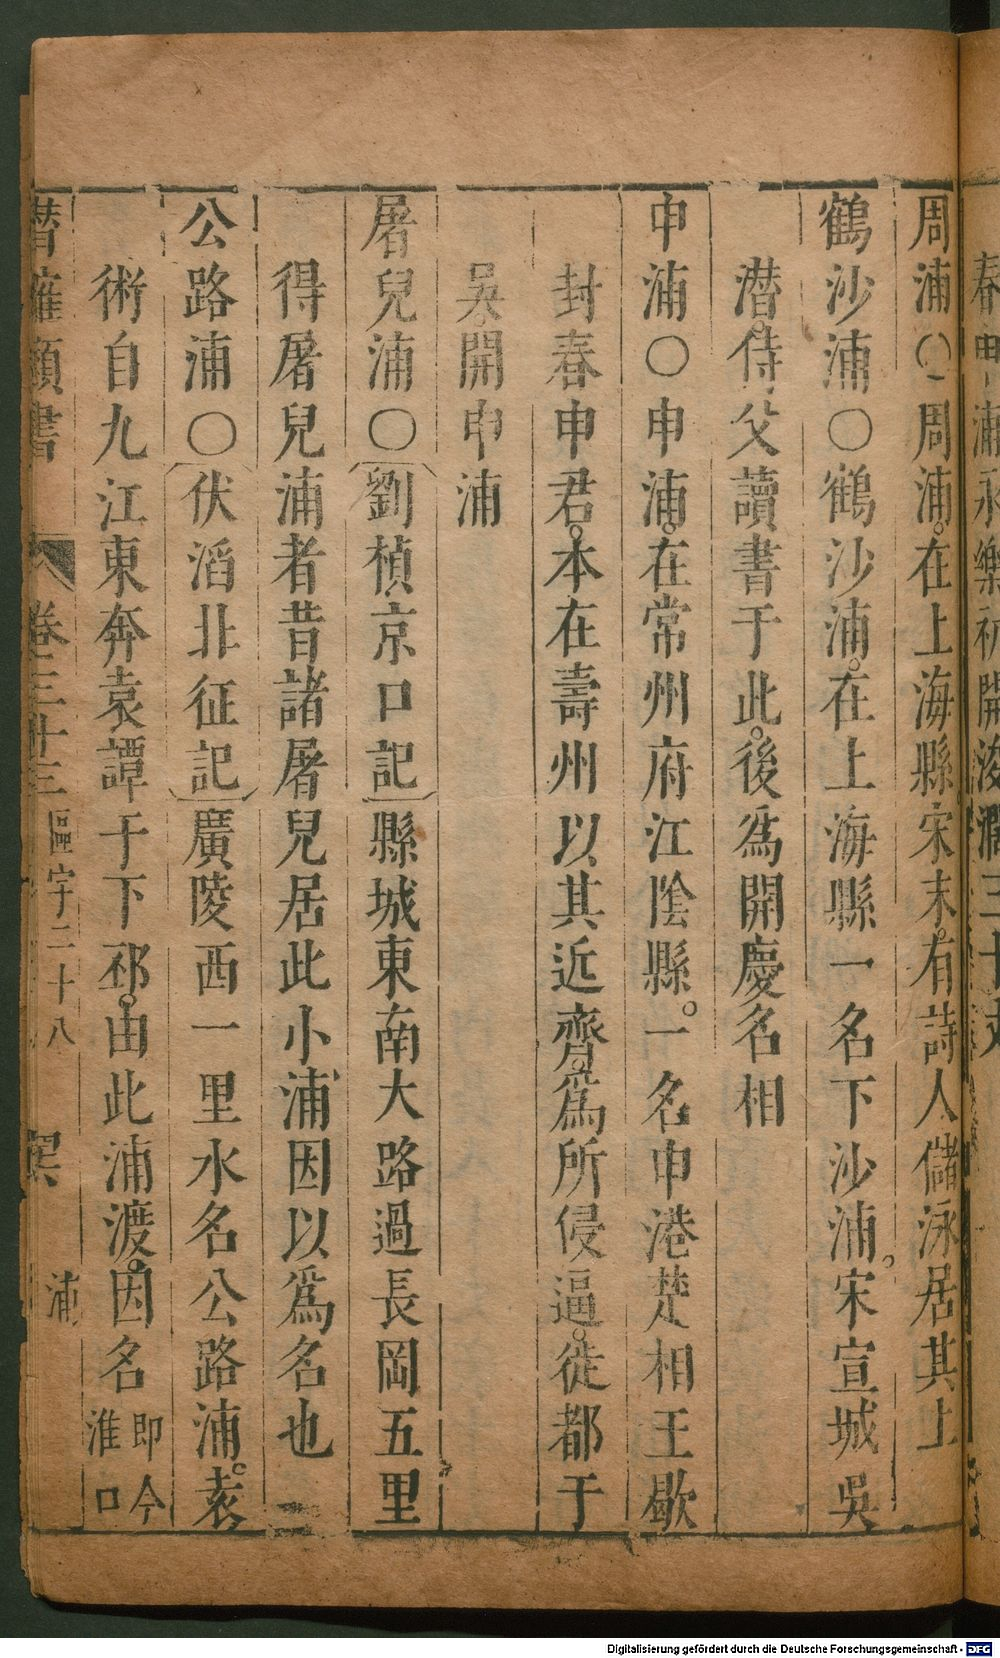 周浦○周浦。在上海縣。宋末。有詩人儲泳居其上
鶴沙浦○鶴沙浦。在上海縣一名下沙浦。宋宣城吳
潛。侍父讀書于此。後爲開慶名相
申浦○申浦。在常州府江陰縣。一名申港楚相王歇
封春申君。本在壽州以其近齊。爲所侵逼。徙都于
吳。開申浦
屠兒浦○劉楨京口記縣城東南大路過長岡五里
得屠兒浦者昔諸屠兒居此小浦因以爲名也
公路浦○伏滔北征記廣陵西一里水名公路浦。袁
術自九江東奔袁譚于下邳。由此浦渡。因名即今淮口
潛確類書 卷三十三 區宇二十八 浦
Digitalisierung gefördert durch die Deutsche Forschungsgemeinschaft - DFG